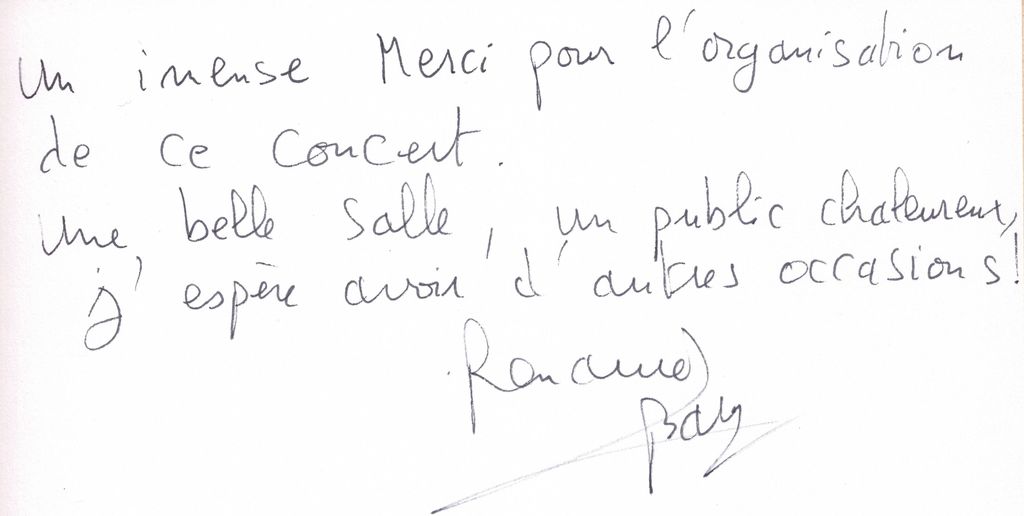 Un imense Merci pour l'organisation
de ce concert.
Une belle salle, un public chaleureux,
j'espère avoir d'autres occasions!
Renaud